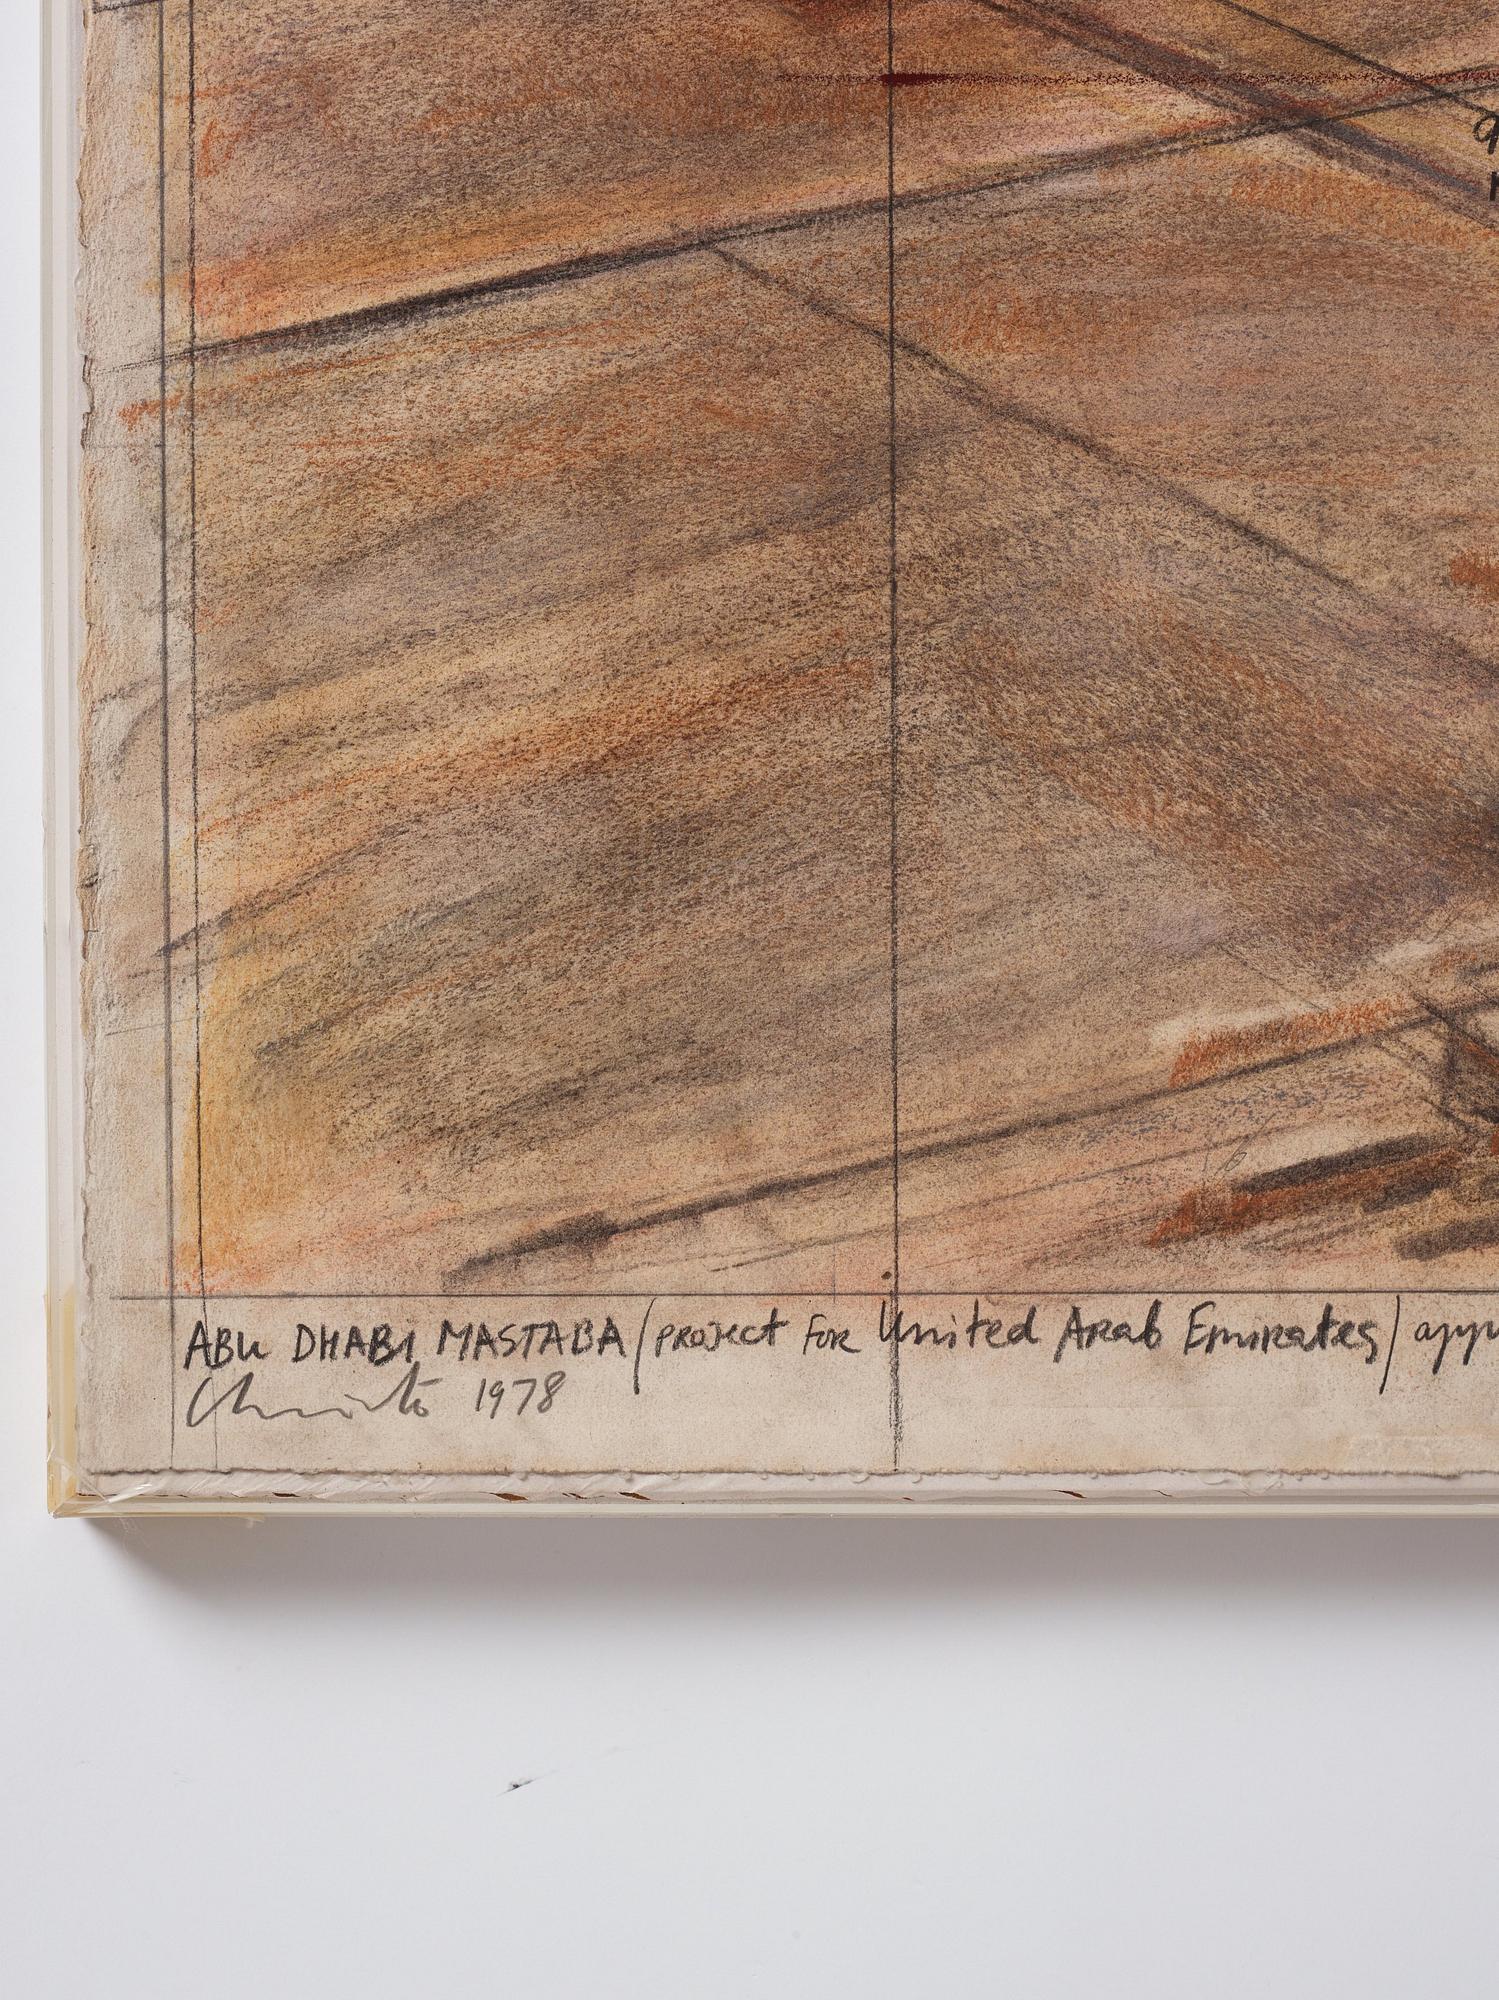 ABU DHABI MASTABA / PROJECT FOR United Arab Emirates /
Christo 1978